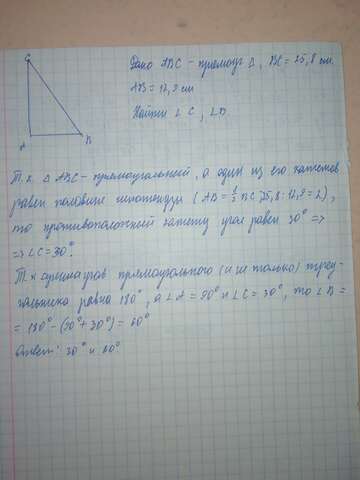 C
Дано ABC - прямоуг Δ, BC = 25,8 см
AB = 12,9 см
Найти ∠C, ∠B
A
B
Т.к. Δ ABC - прямоугольный, а один из его катетов
равен половине гипотенузы (AB = 1/2 BC, 25,8 : 12,9 = 2),
то противоположный катету угол равен 30° =>
=> ∠C = 30°.
Т.к сумма углов прямоугольного (и не только) треу-
гольника равна 180°, а ∠A = 90° и ∠C = 30°, то ∠B =
= 180° - (90° + 30°) = 60°
Ответ: 30° и 60°